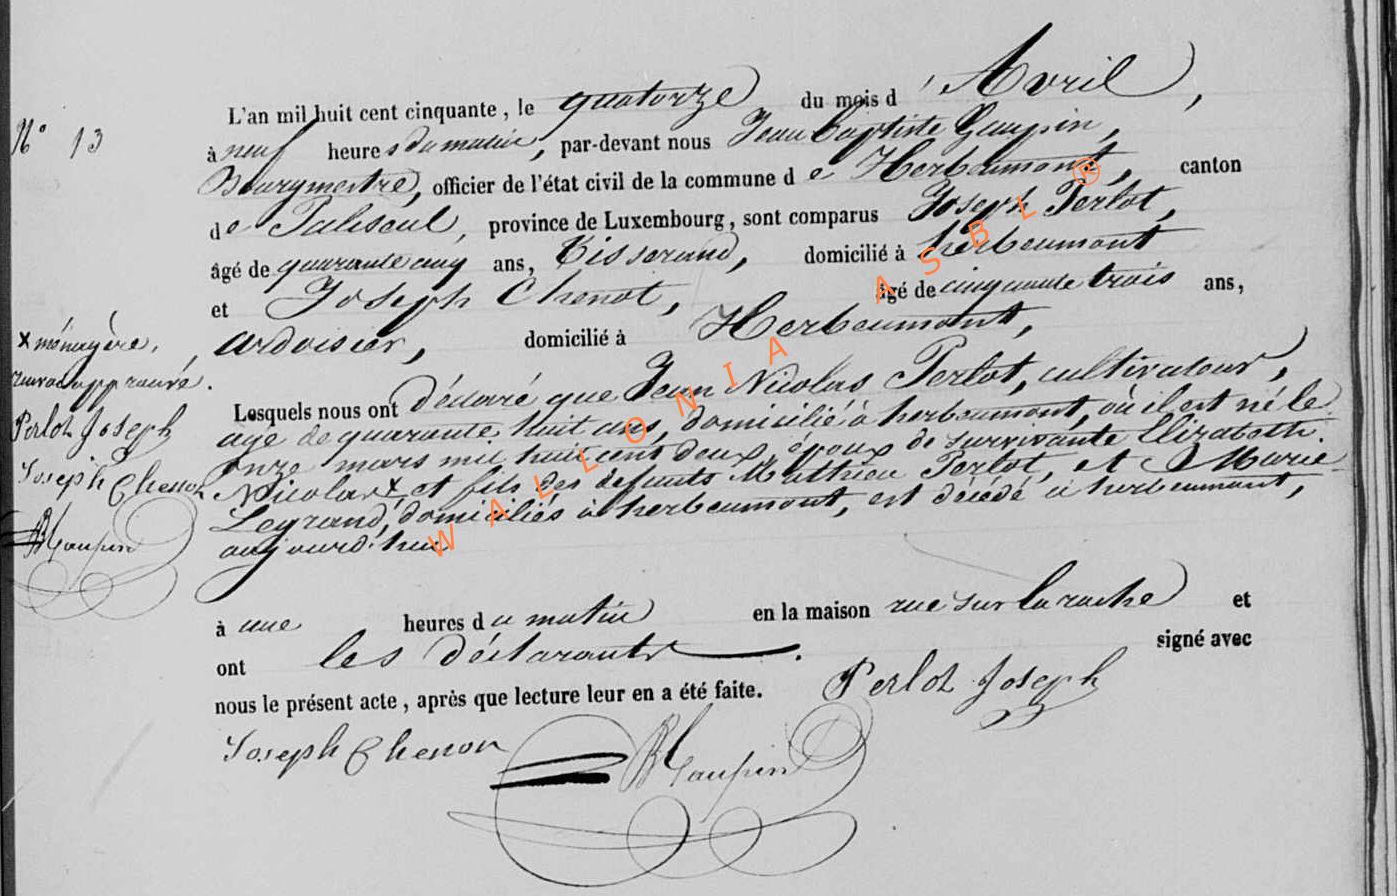 N° 13
L'an mil huit cent cinquante, le quatorze du mois d'Avril,
à neuf heures du matin, par-devant nous Jean Baptiste Gaupin,
Bourgmestre, officier de l'état civil de la commune de Herbeumont, canton
de Paliseul, province de Luxembourg, sont comparus Joseph Perlot,
âgé de quarante cinq ans, Tisserand, domicilié à herbeumont
et Joseph Chenot, âgé de cinquante trois ans,
ardoisier, domicilié à Herbeumont,
Lesquels nous ont déclaré que Jean Nicolas Perlot, cultivateur,
agé de quarante huit ans, domicilié à herbeumont, où il est né le
onze mars mil huit cent deux, époux de survivante Elizabeth
Nicolas x, et fils des défunts Mathieu Perlot, et Marie
Legrand, domiciliés à herbeumont, est décédé à herbeumont,
aujourd'hui
à une heures du matin en la maison rue sur la roche et
ont les déclarants signé avec
nous le présent acte, après que lecture leur en a été faite. Perlot Joseph
Joseph Chenot JB Gaupin
x ménagère,
renvoi approuvé.
Perlot Joseph
Joseph Chenot
JB Gaupin
WALLONIA ASBL ®